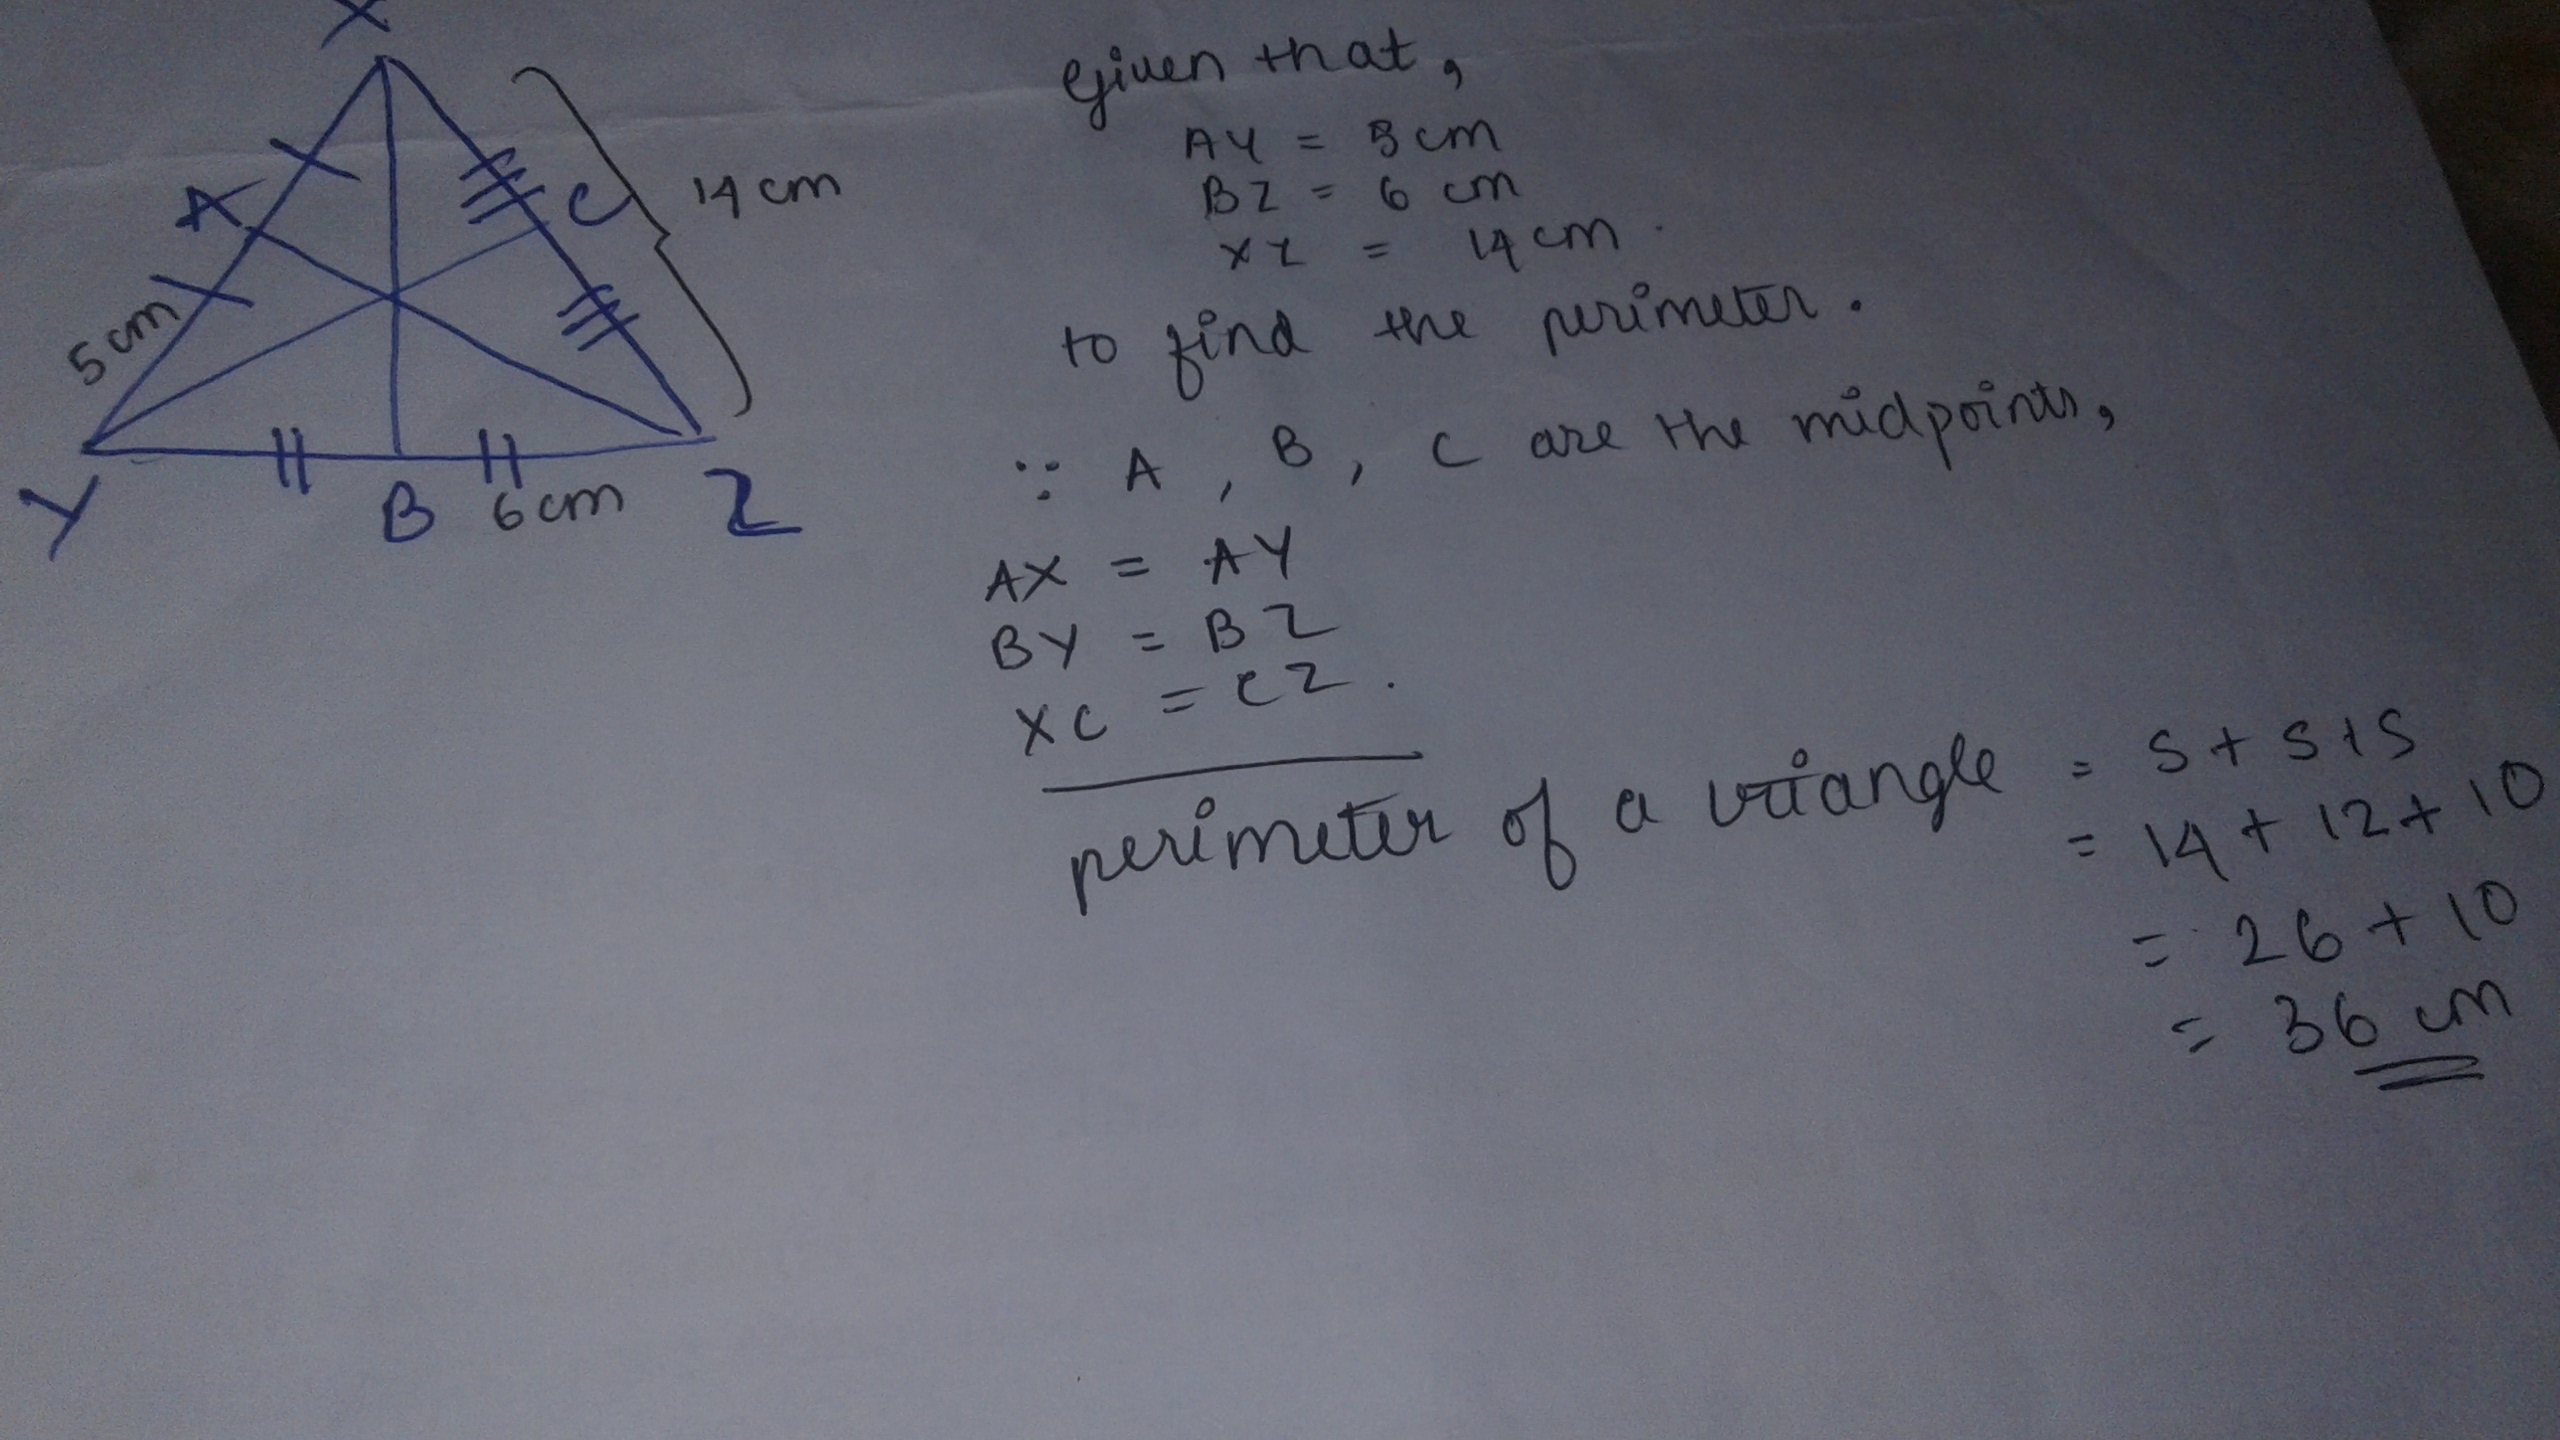 X
A
C
14 cm
5 cm
Y
B
6 cm
Z
Given that,
AY = 5 cm
BZ = 6 cm
XZ = 14 cm.
to find the perimeter.
∵ A, B, C are the midpoints,
AX = AY
BY = BZ
XC = CZ.
perimeter of a triangle = S + S + S
= 14 + 12 + 10
= 26 + 10
= 36 cm